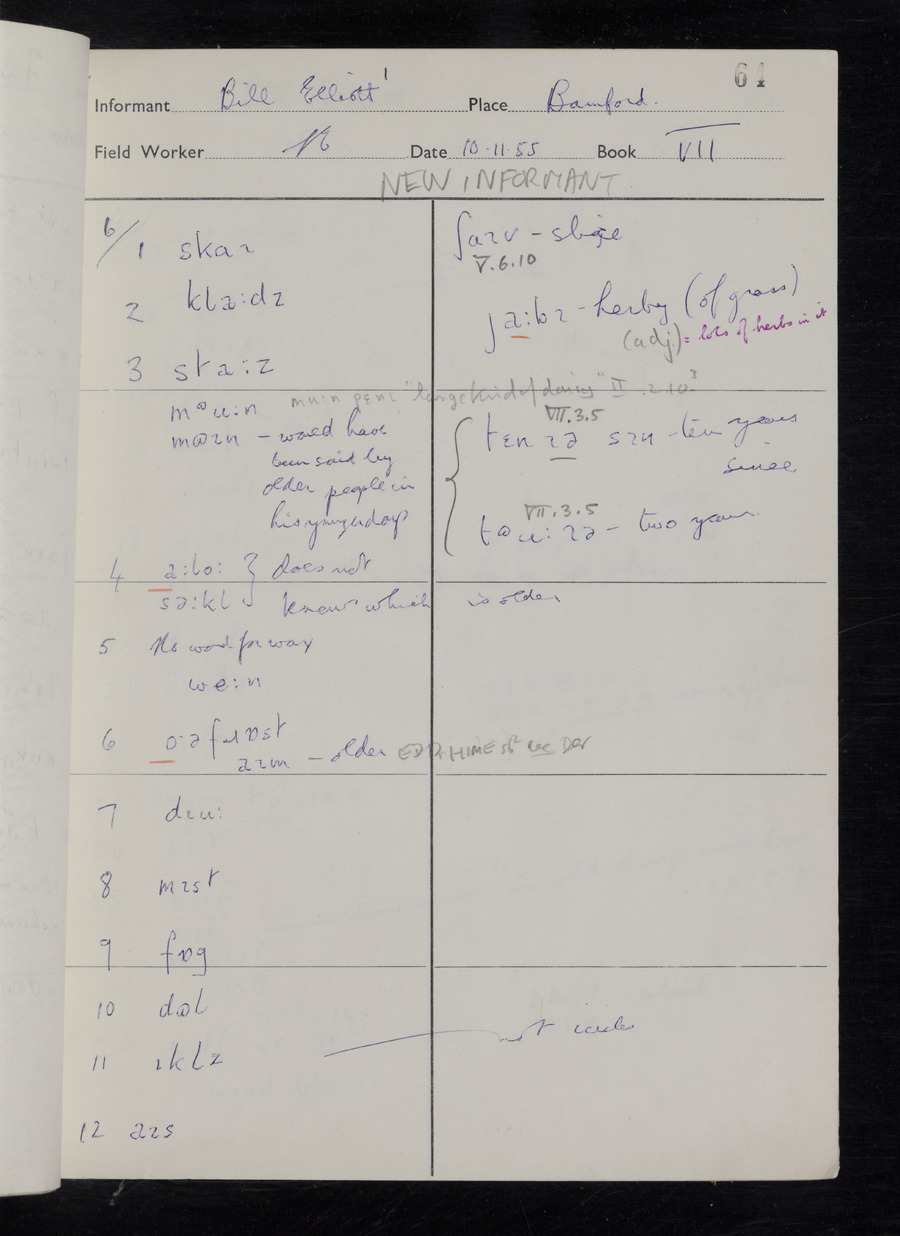 61
Informant Bill Elliott¹ Place Bamford.
Field Worker Date 10.11.55 Book VII
NEW INFORMANT
6/1 skaɪ
2 klaːdz
3 staːz
mᵊuːn
mɒɪn – would have
been said by
older people in
his younger days
4 aːloː } does not
səːkl } know which is older
5 No word for way
weːn
6 oːəfɹɒst
aɪm – older
7 dɪuː
8 mɪst
9 fɒg
10 dɒl
11 ɪklz
12 aɪs
ʃaɪv – slice
V.6.10
jaːbɪ – herby (of grass)
(adj.) = lots of herbs in it
"large kind of daisy" II.2.10³
VII.3.5
tɛn ɪə sɪn – ten years
since
VII.3.5
tɒuː ɪə – two years
not icicles